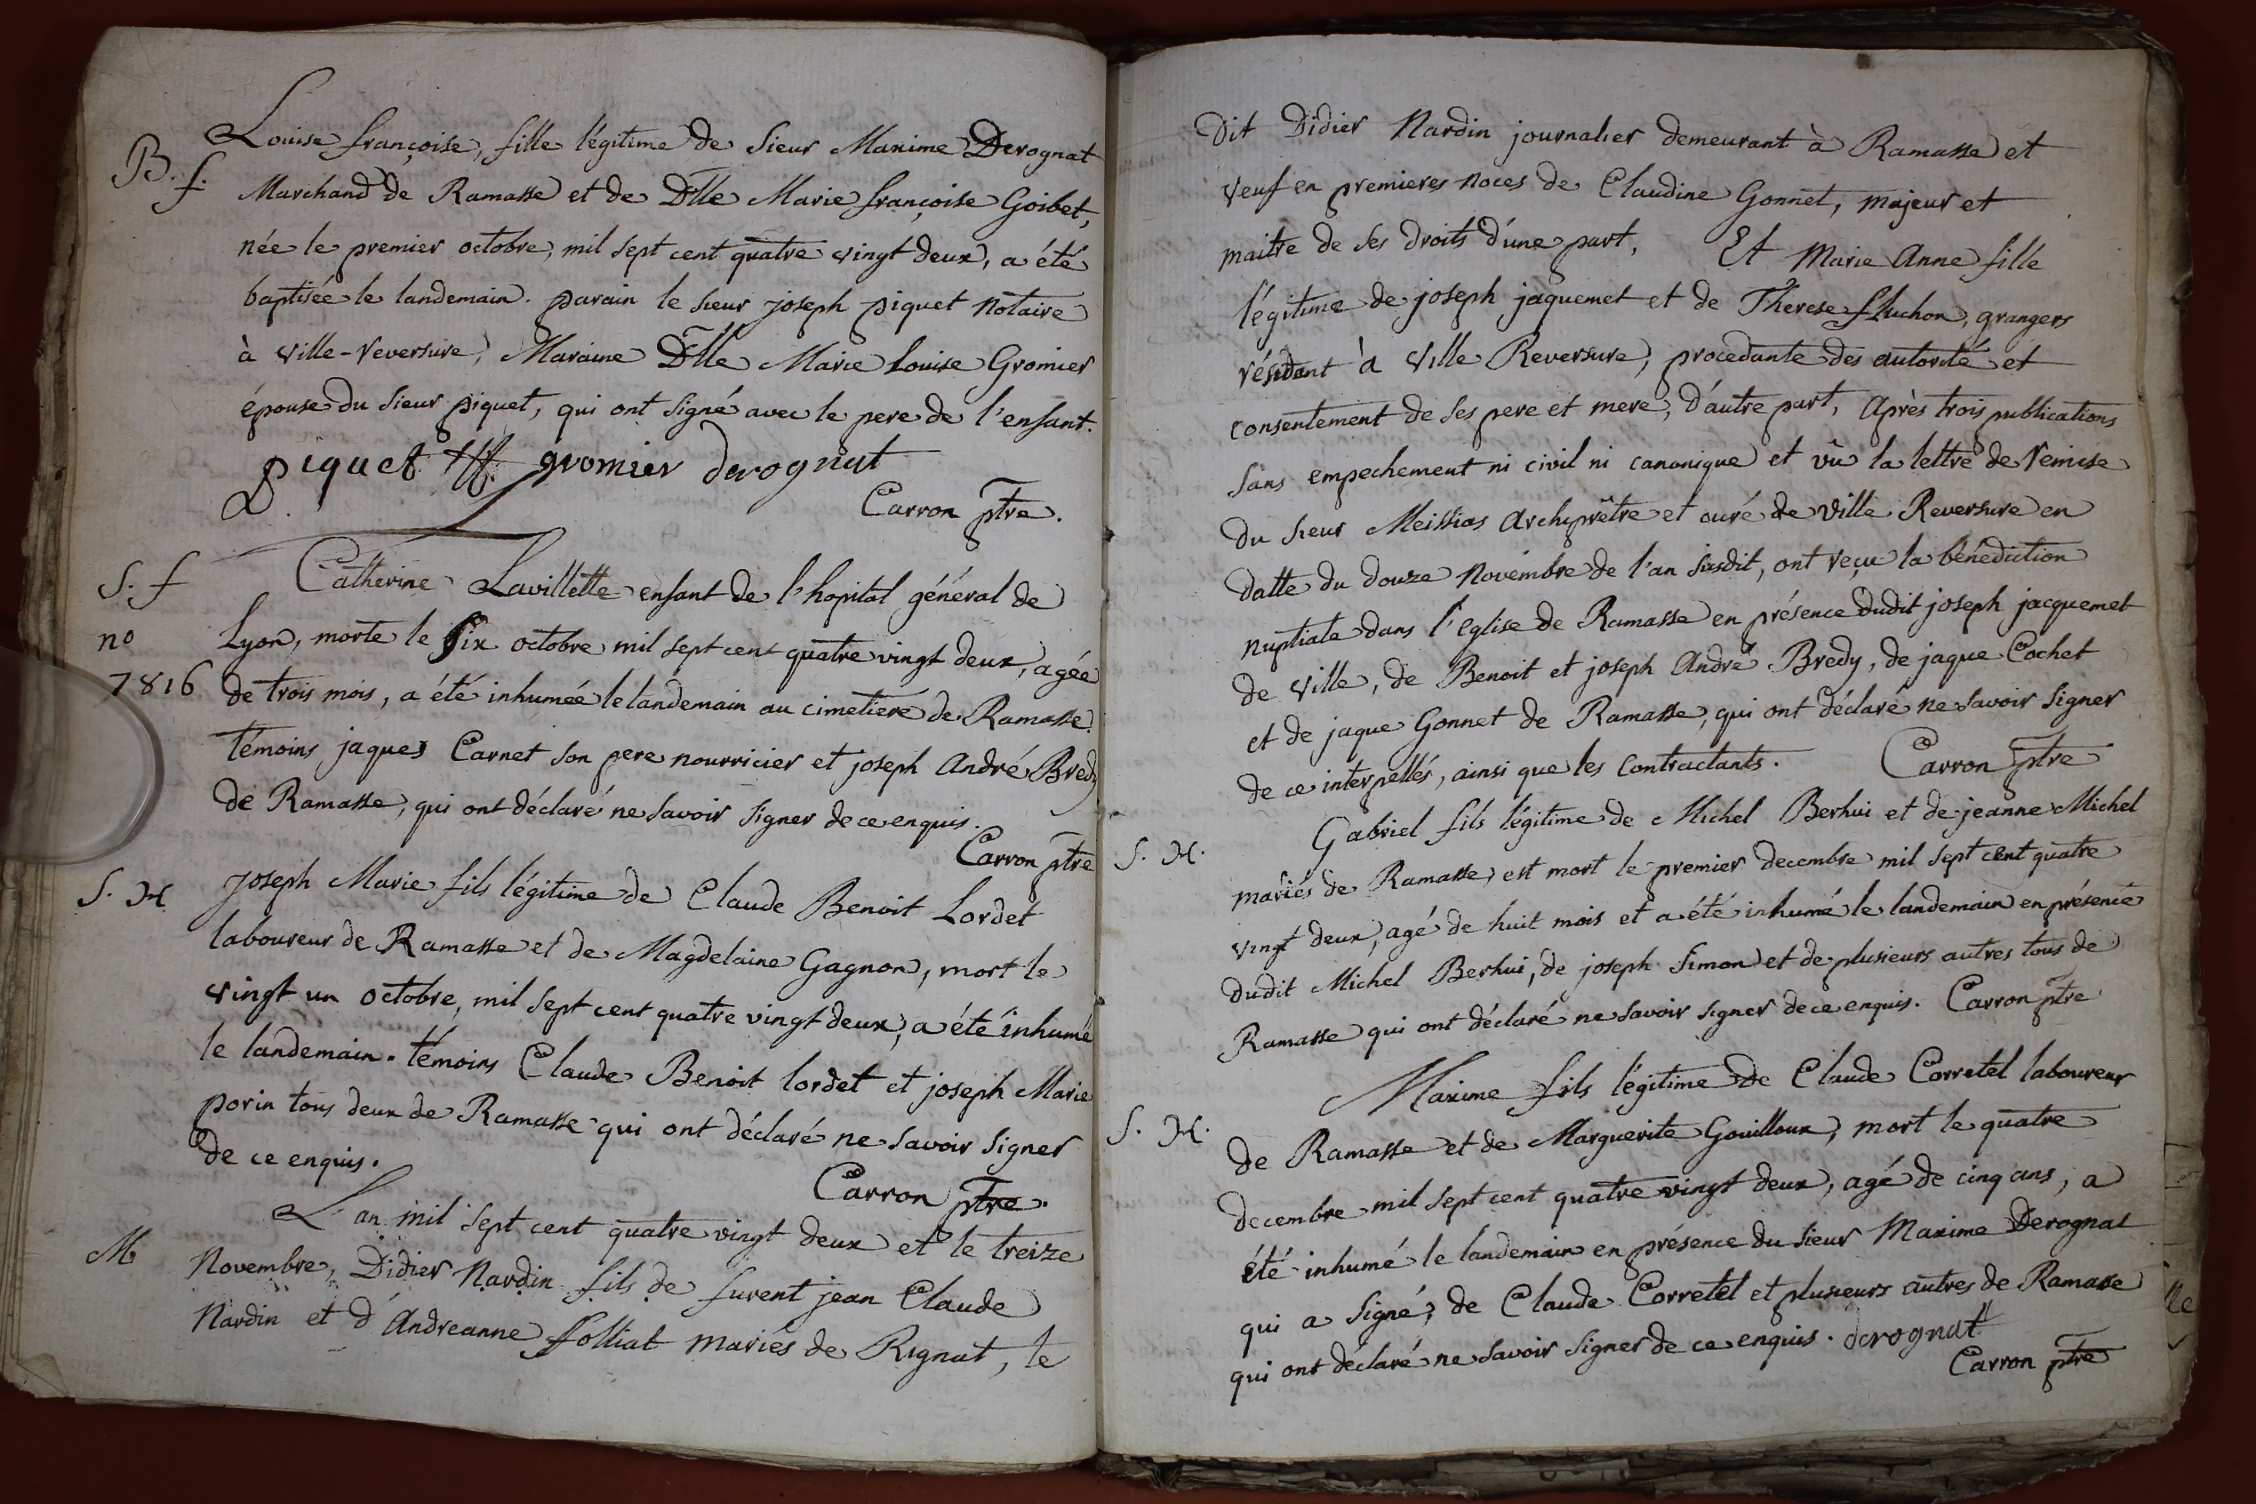 B. f.
Louise françoise, fille légitime de Sieur Maxime Derognat
Marchand de Ramasse et de Dlle Marie françoise Goibet,
née le premier octobre, mil sept cent quatre vingt deux, a été
baptisée le landemain. parain le sieur joseph piquet Notaire
à Ville-reversure, Maraine Dlle Marie Louise Gromier
épouse du Sieur piquet, qui ont signé avec le pere de l'enfant.
piquet gromier derognat
Carron ptre.
S. f
n°
7816
Catherine Lavillette enfant de l'hopital général de
Lyon, morte le six octobre mil sept cent quatre vingt deux, agée
de trois mois, a été inhumée le landemain au cimetiere de Ramasse.
témoins jaques Carnet son pere nourricier et joseph André Bredy
de Ramasse, qui ont déclaré ne savoir signer de ce enquis.
Carron ptre
S. M
joseph Marie fils légitime de Claude Benoit Lordet
laboureur de Ramasse et de Magdelaine Gagnon, mort le
vingt un octobre, mil sept cent quatre vingt deux, a été inhumé
le landemain. témoins Claude Benoit lordet et joseph Marie
porin tous deux de Ramasse qui ont déclaré ne savoir signer
de ce enquis.
Carron ptre.
M
L'an mil sept cent quatre vingt deux et le treize
Novembre, Didier Nardin fils de furent jean Claude
Nardin et d'Andreanne folliat mariés de Rignat, le
dit Didier Nardin journalier demeurant à Ramasse et
veuf en premieres noces de Claudine Gonnet, majeur et
maitre de ses droits d'une part, Et Marie Anne fille
légitime de joseph jaquemet et de Therese fluchon, grangers
résidant à Ville Reversure, procedante des autorité et
consentement de ses pere et mere, d'autre part, Après trois publications
sans empechement ni civil ni canonique et vû la lettre de remise
du sieur Meissias Archiprêtre et curé de Ville Reversure en
datte du douze Novembre de l'an susdit, ont reçu la bénédiction
nuptiale dans l'Eglise de Ramasse en présence dudit joseph jacquemet
de Ville, de Benoit et joseph André Bredy, de jaque Cochet
et de jaque Gonnet de Ramasse, qui ont déclaré ne savoir signer
de ce interpellés, ainsi que les Contractants. Carron ptre
S. M.
Gabriel fils légitime de Michel Berhui et de jeanne Michel
mariés de Ramasse, est mort le premier decembre mil sept cent quatre
vingt deux, agé de huit mois et a été inhumé le landemain en présence
dudit Michel Berhui, de joseph Simon et de plusieurs autres tous de
Ramasse qui ont déclaré ne savoir signer de ce enquis. Carron ptre
S. M.
Maxime fils légitime de Claude Corretel laboureur
de Ramasse et de Marguerite Gouilloux, mort le quatre
decembre mil sept cent quatre vingt deux, agé de cinq ans, a
été inhumé le landemain en présence du sieur Maxime Derognat
qui a signé, de Claude Corretel et plusieurs autres de Ramasse
qui ont déclaré ne savoir signer de ce enquis. derognat
Carron ptre